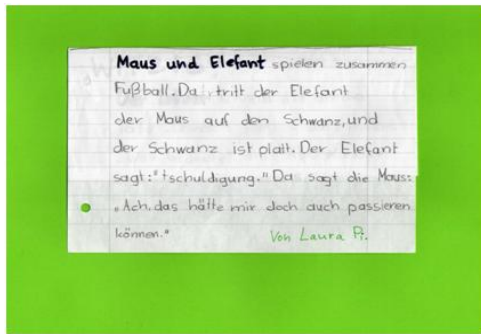 Maus und Elefant spielen zusammen
Fußball. Da tritt der Elefant
der Maus auf den Schwanz, und
der Schwanz ist platt. Der Elefant
sagt: "tschuldigung." Da sagt die Maus:
„Ach, das hätte mir doch auch passieren
können."
Von Laura Pi.